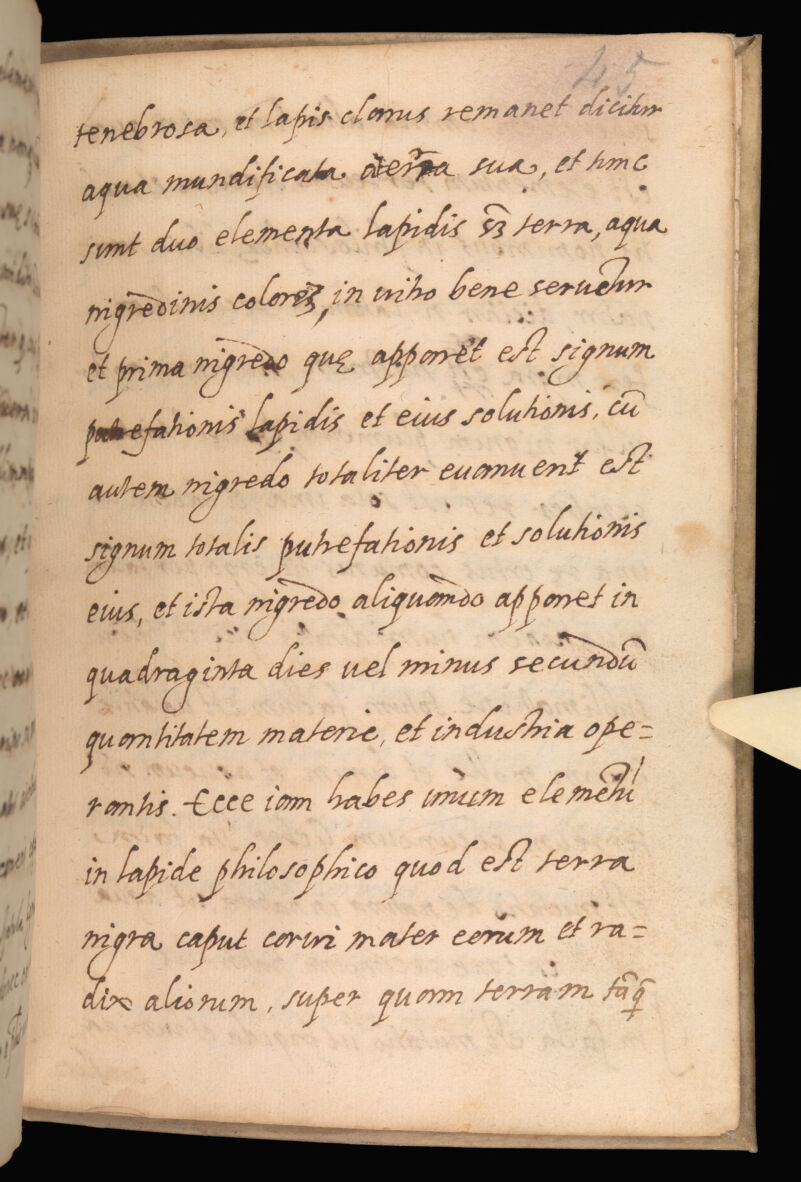 45
tenebrosa, et lapis clarus remanet dicitur
aqua mundificata a terra sua, et tunc
sunt duo elementa lapidis s3 terra, aqua
nigredinis colores, in vitro bene seruetur
et prima nigredo quę apparet est signum
putrefationis lapidis et eius solutionis, cū
autem nigredo totaliter euanuerit est
signum totalis putrefationis et solutionis
eius, et ista nigredo aliquando apparet in
quadraginta dies vel minus secundū
quantitatem materie, et industria ope=
rantis. Ecce iam habes unum elemētū
in lapide philosophico quod est terra
nigra caput corvi mater eorum et ra=
dix aliorum, super quam terram tāq̄